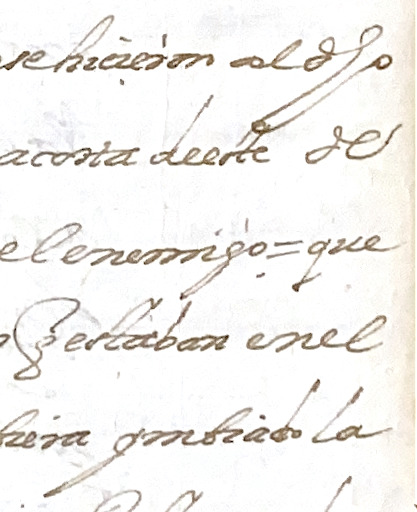 se hicieron al dho
acosta de este del
el enemigo = que
q estaban en el
hera ymbiado la